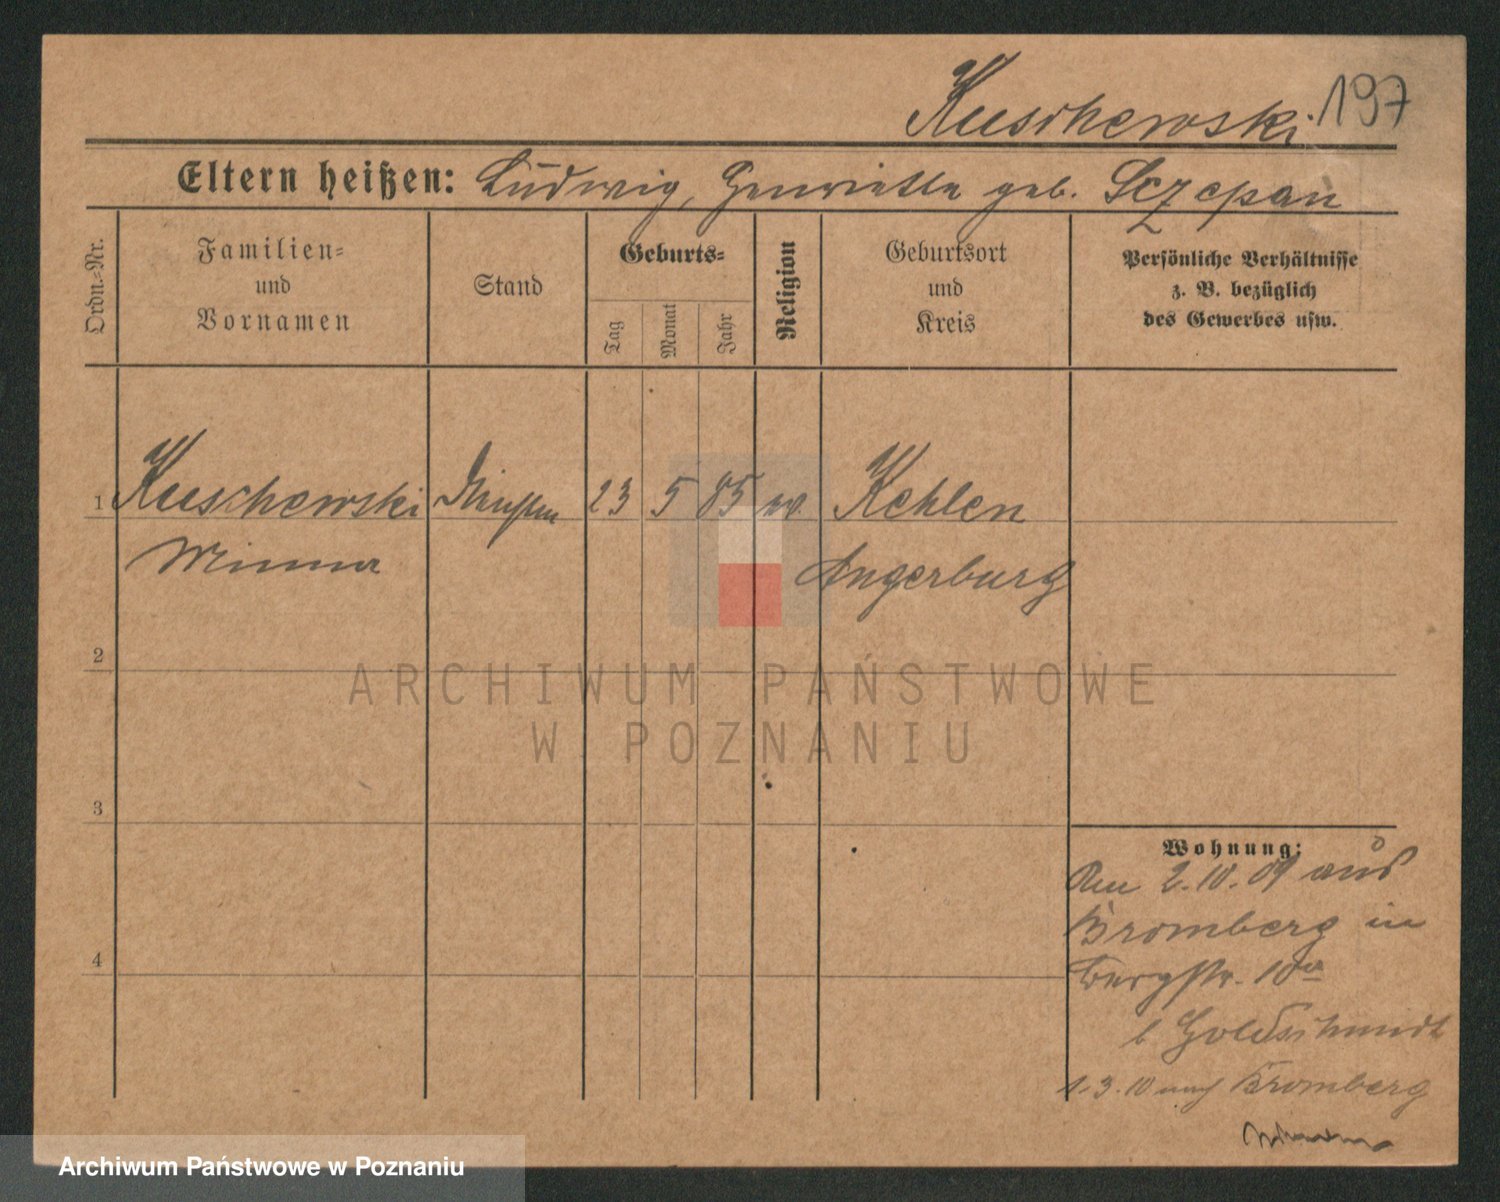 Kuschewski 197
Eltern heißen: Ludwig, Henriette geb. Sczepan
Ordn.-Nr.
Familien-
und
Vornamen
Stand
Geburts-
Tag
Monat
Jahr
Religion
Geburtsort
und
Kreis
Persönliche Verhältnisse
z. B. bezüglich
des Gewerbes usw.
1 Kuschewski 23 5 85 ev. Kehlen
Minna Angerburg
2
3
4
Wohnung:
Am 2.10.09 aus
Bromberg in
Bergstr. 10a
b Goldschmidt
1.3.10 nach Bromberg
ARCHIWUM PAŃSTWOWE
W POZNANIU
Archiwum Państwowe w Poznaniu